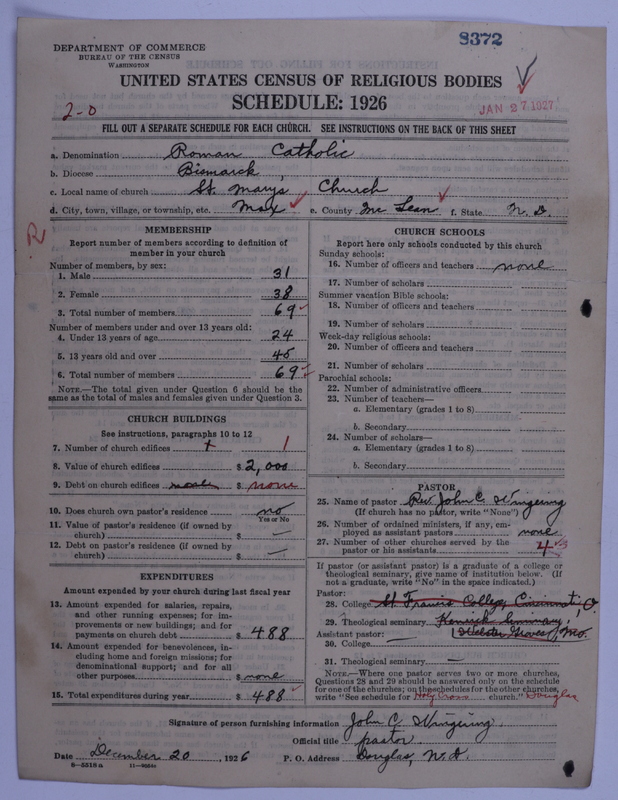 8372
DEPARTMENT OF COMMERCE
BUREAU OF THE CENSUS
WASHINGTON
UNITED STATES CENSUS OF RELIGIOUS BODIES
SCHEDULE: 1926
2-0
JAN 27 1927
FILL OUT A SEPARATE SCHEDULE FOR EACH CHURCH. SEE INSTRUCTIONS ON THE BACK OF THIS SHEET
a. Denomination Roman Catholic
b. Diocese Bismarck
c. Local name of church St. Marys Church
d. City, town, village, or township, etc. Max e. County Mc Lean f. State N. D.
R
MEMBERSHIP
Report number of members according to definition of
member in your church
Number of members, by sex:
1. Male 31
2. Female 38
3. Total number of members 69
Number of members under and over 13 years old:
4. Under 13 years of age 24
5. 13 years old and over 45
6. Total number of members 69
NOTE.—The total given under Question 6 should be the
same as the total of males and females given under Question 3.
CHURCH BUILDINGS
See instructions, paragraphs 10 to 12
7. Number of church edifices 1 1
8. Value of church edifices $ 2,000
9. Debt on church edifices $ none
10. Does church own pastor's residence no
Yes or No
11. Value of pastor's residence (if owned by
church) $ —
12. Debt on pastor's residence (if owned by
church) $ —
EXPENDITURES
Amount expended by your church during last fiscal year
13. Amount expended for salaries, repairs,
and other running expenses; for im-
provements or new buildings; and for
payments on church debt $ 488
14. Amount expended for benevolences, in-
cluding home and foreign missions; for
denominational support; and for all
other purposes $ none
15. Total expenditures during year $ 488
CHURCH SCHOOLS
Report here only schools conducted by this church
Sunday schools:
16. Number of officers and teachers none
17. Number of scholars
Summer vacation Bible schools:
18. Number of officers and teachers
19. Number of scholars
Week-day religious schools:
20. Number of officers and teachers
21. Number of scholars
Parochial schools:
22. Number of administrative officers
23. Number of teachers—
a. Elementary (grades 1 to 8)
b. Secondary
24. Number of scholars—
a. Elementary (grades 1 to 8)
b. Secondary
PASTOR
25. Name of pastor Rev. John C. Wingering
(If church has no pastor, write "None")
26. Number of ordained ministers, if any, em-
ployed as assistant pastors none
27. Number of other churches served by the
pastor or his assistants 4
If pastor (or assistant pastor) is a graduate of a college or
theological seminary, give name of institution below. (If
not a graduate, write "No" in the space indicated.)
Pastor:
28. College St. Francis College, Cincinnati, O.
29. Theological seminary Kenrick Seminary,
Assistant pastor: Webster Groves, Mo.
30. College —
31. Theological seminary —
NOTE.—Where one pastor serves two or more churches,
Questions 28 and 29 should be answered only on the schedule
for one of the churches; on the schedules for the other churches,
write "See schedule for Holy Cross church." Douglas
Signature of person furnishing information John C. Wingering
Official title pastor
Date December 20, 1926 P. O. Address Douglas, N. D.